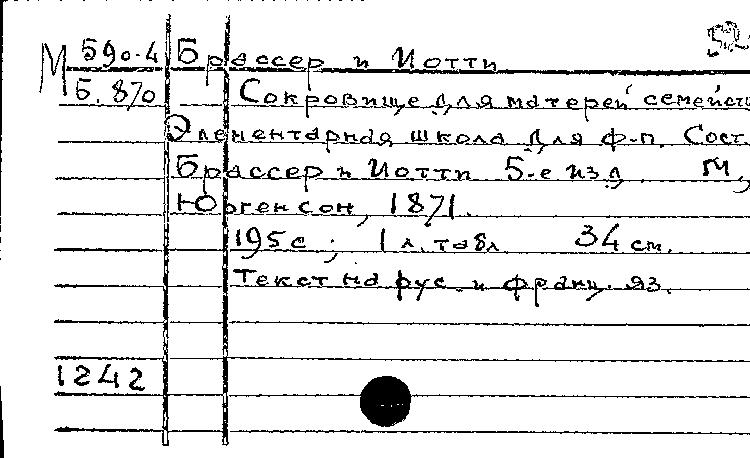 М 590-4 Брассер и Иотти
Б. 870 Сокровище для матерей семейств
Элементарная школа для ф-п. Сост.
Брассер и Иотти 5-е изд. М,
Юргенсон, 1871.
195 с; 1 л. табл 34 см.
Текст на рус. и франц. яз.
1242